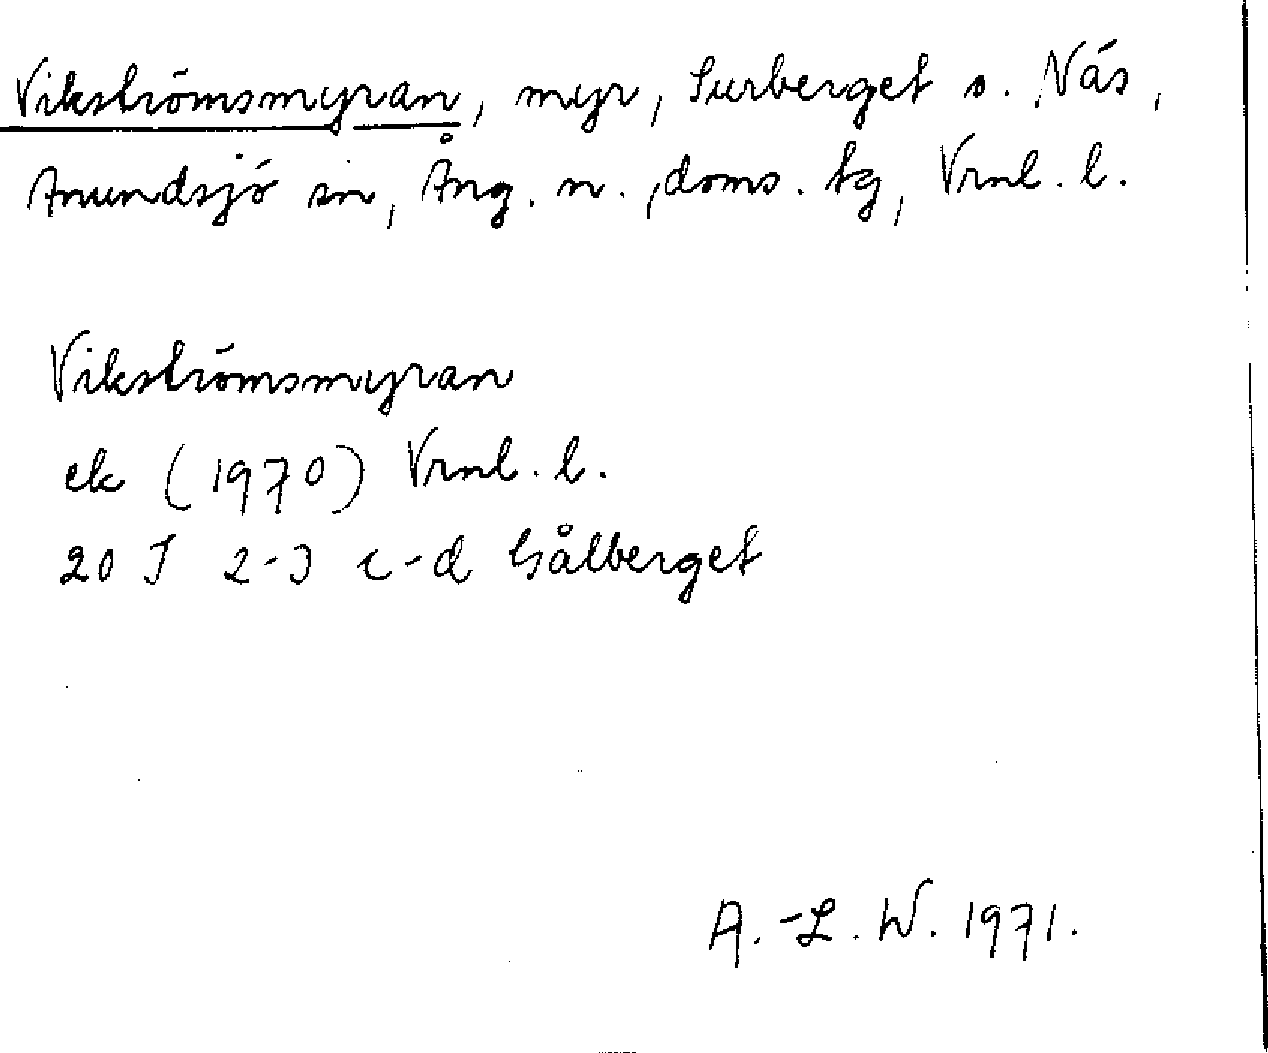 Vikströmsmyran, myr, Surberget o. Näs,
Anundsjö sn, Ång. n., doms. tg, Vrnl. l.
Vikströmsmyran
ek (1970) Vrnl. l.
20 J 2-3 c-d Gålberget
A.-L. W. 1971.